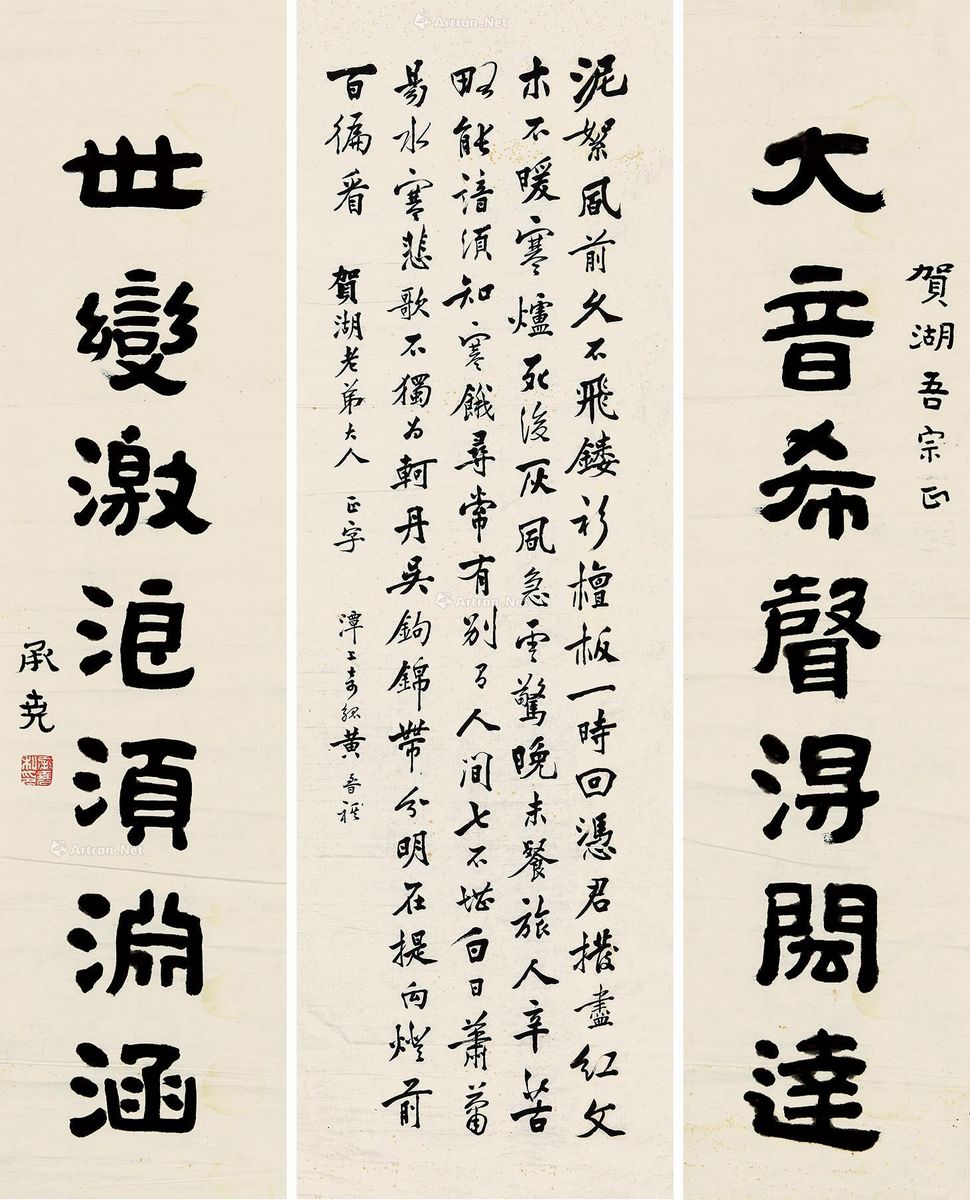 賀湖吾宗正
大音希聲得閎達
泥絮風前久不飛鏤衫檀板一時回憑君撥盡紅文
木不暖寒爐死後灰風急雲驚晚未餐旅人辛苦
略能諳須知寒餓尋常有別有人間七不堪白日蕭蕭
易水寒悲歌不獨為軻丹吳鉤錦帶分明在提向燈前
百徧看 賀湖老弟大人 正字 潭上 黃
世變激須淵涵
承堯
Artron.Net
Artron.Net
Artron.Net